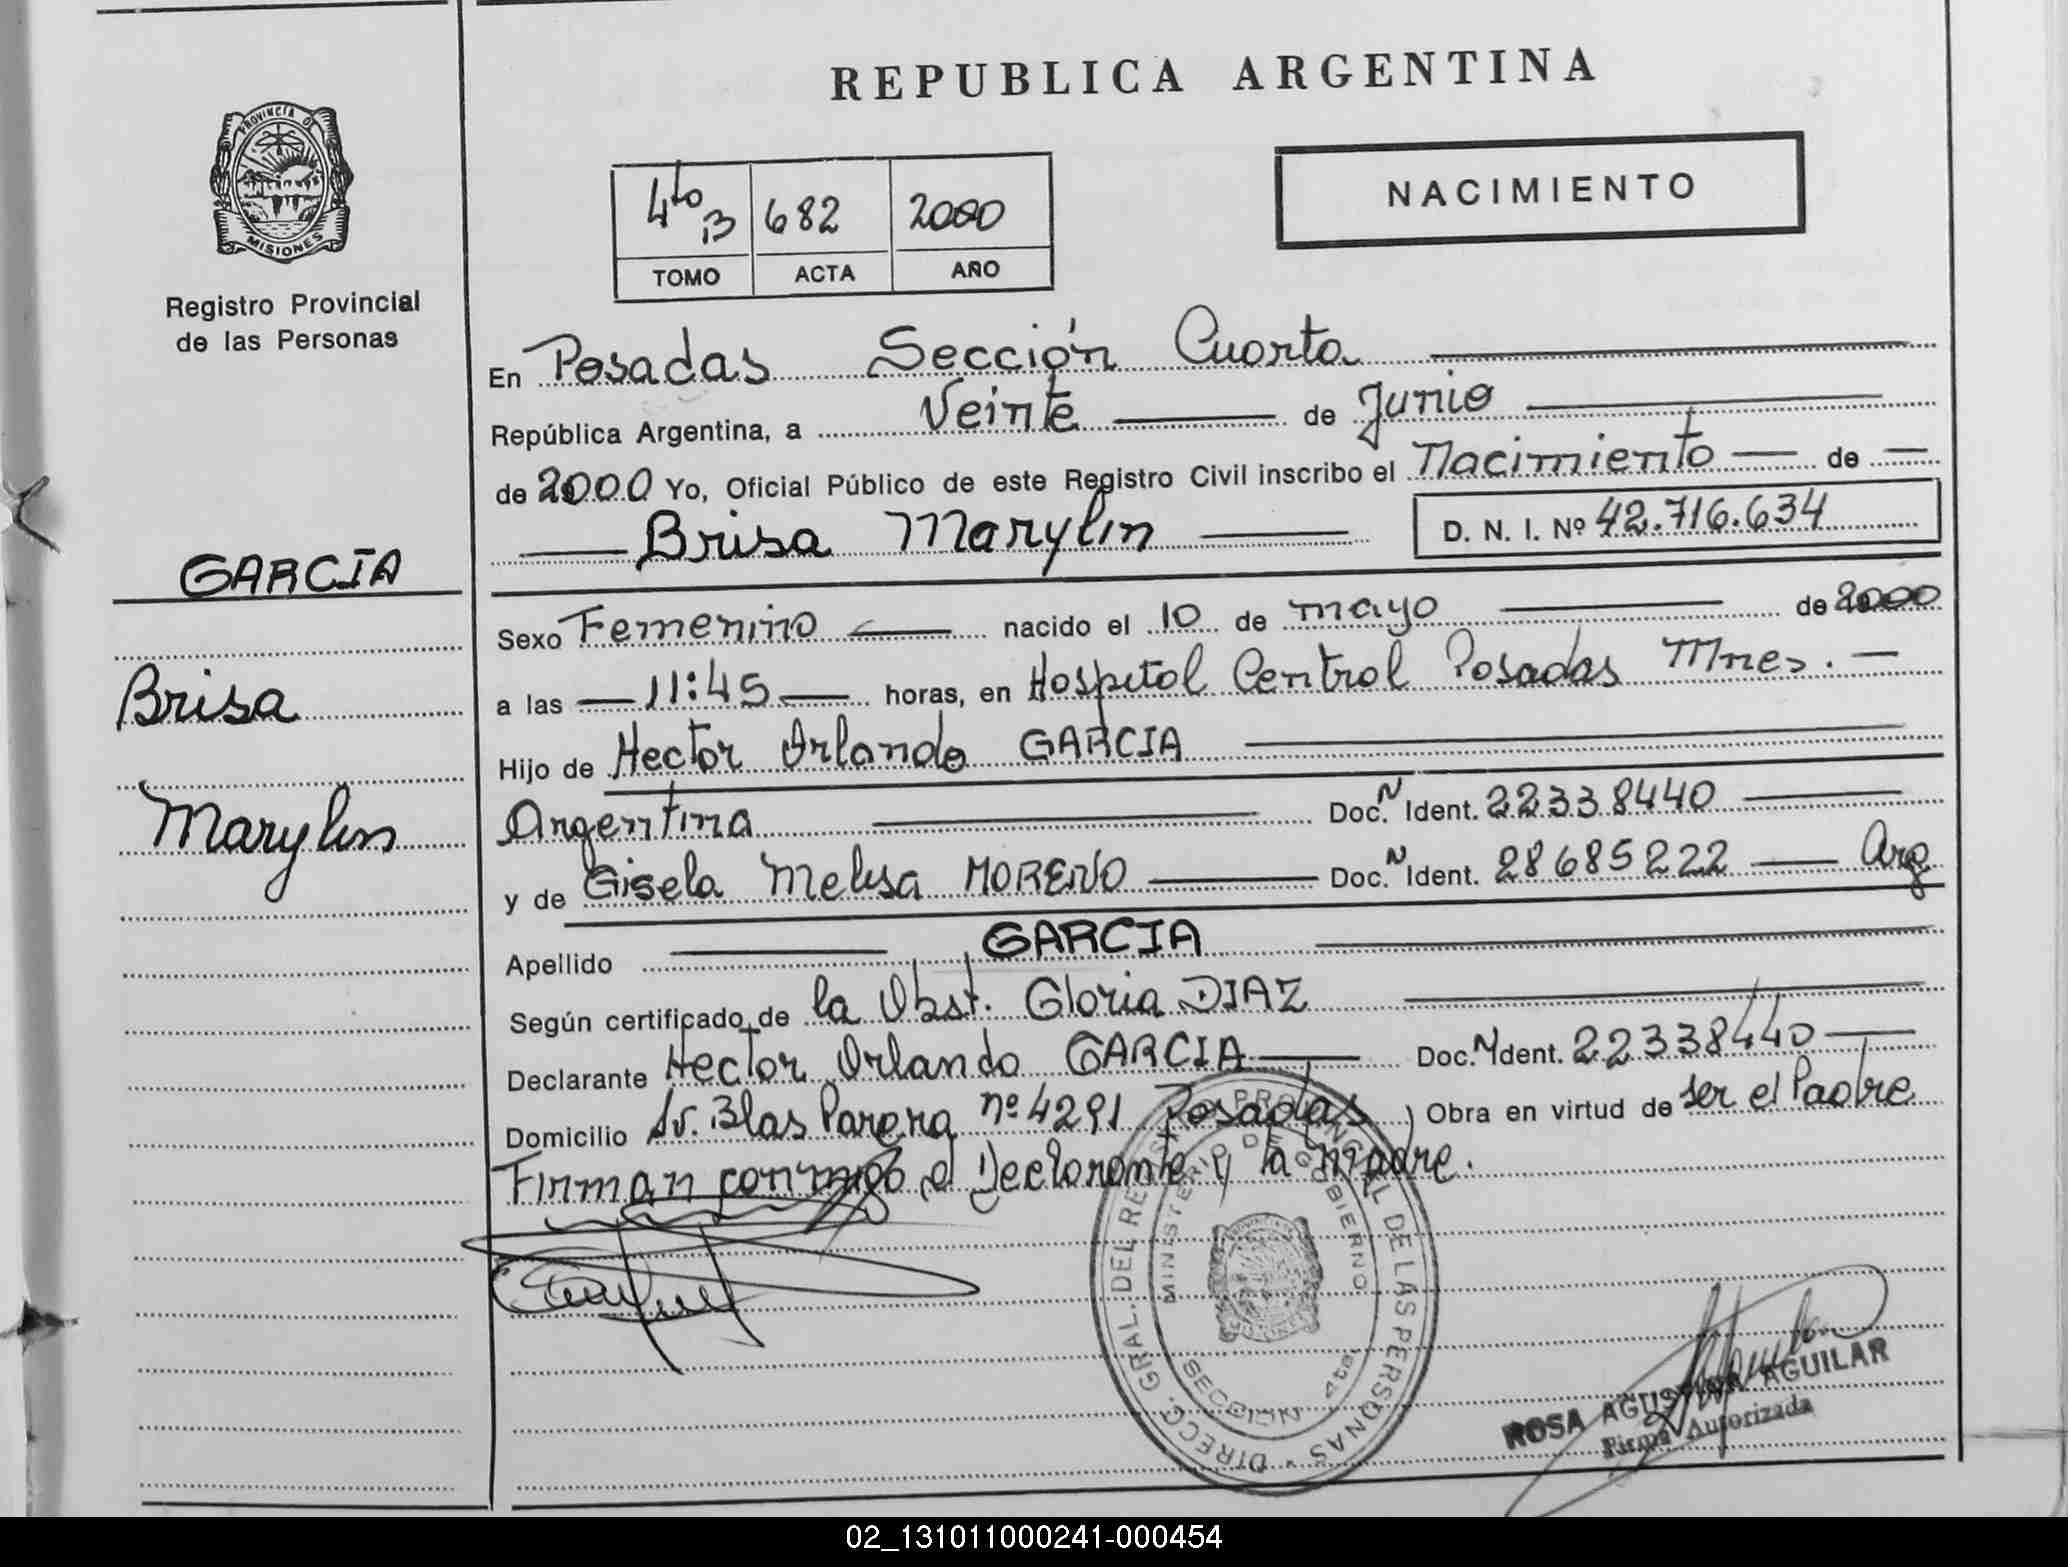 REPUBLICA ARGENTINA
PROVINCIA DE
MISIONES
Registro Provincial
de las Personas
4to B 682 2000
TOMO ACTA AÑO
NACIMIENTO
En Posadas Sección Cuarta
República Argentina, a Veinte de Junio
de 2000 Yo, Oficial Público de este Registro Civil inscribo el Nacimiento de
Brisa Marylin D. N. I. Nº 42.716.634
GARCÍA
Sexo Femenino nacido el 10 de mayo de 2000
Brisa
a las 11:45 horas, en Hospital Central Posadas Mnes.
Hijo de Hector Orlando GARCIA
Marylin
Argentina Doc. N Ident. 22338440
y de Gisela Melisa MORENO Doc. N Ident. 28685222 Arg
Apellido GARCIA
Según certificado de la Obst. Gloria DIAZ
Declarante Hector Orlando GARCIA Doc. N Ident. 22338440
Domicilio Av. Blas Parera nº 4291 Posadas Obra en virtud de ser el Padre
Firman conmigo el Declarante y la madre.
DIRECC. GRAL. DEL REGISTRO PROVINCIAL DE LAS PERSONAS
MINISTERIO DE GOBIERNO
SECCION 4ta
ROSA AGUSTINA AGUILAR
Firma Autorizada
02_131011000241-000454